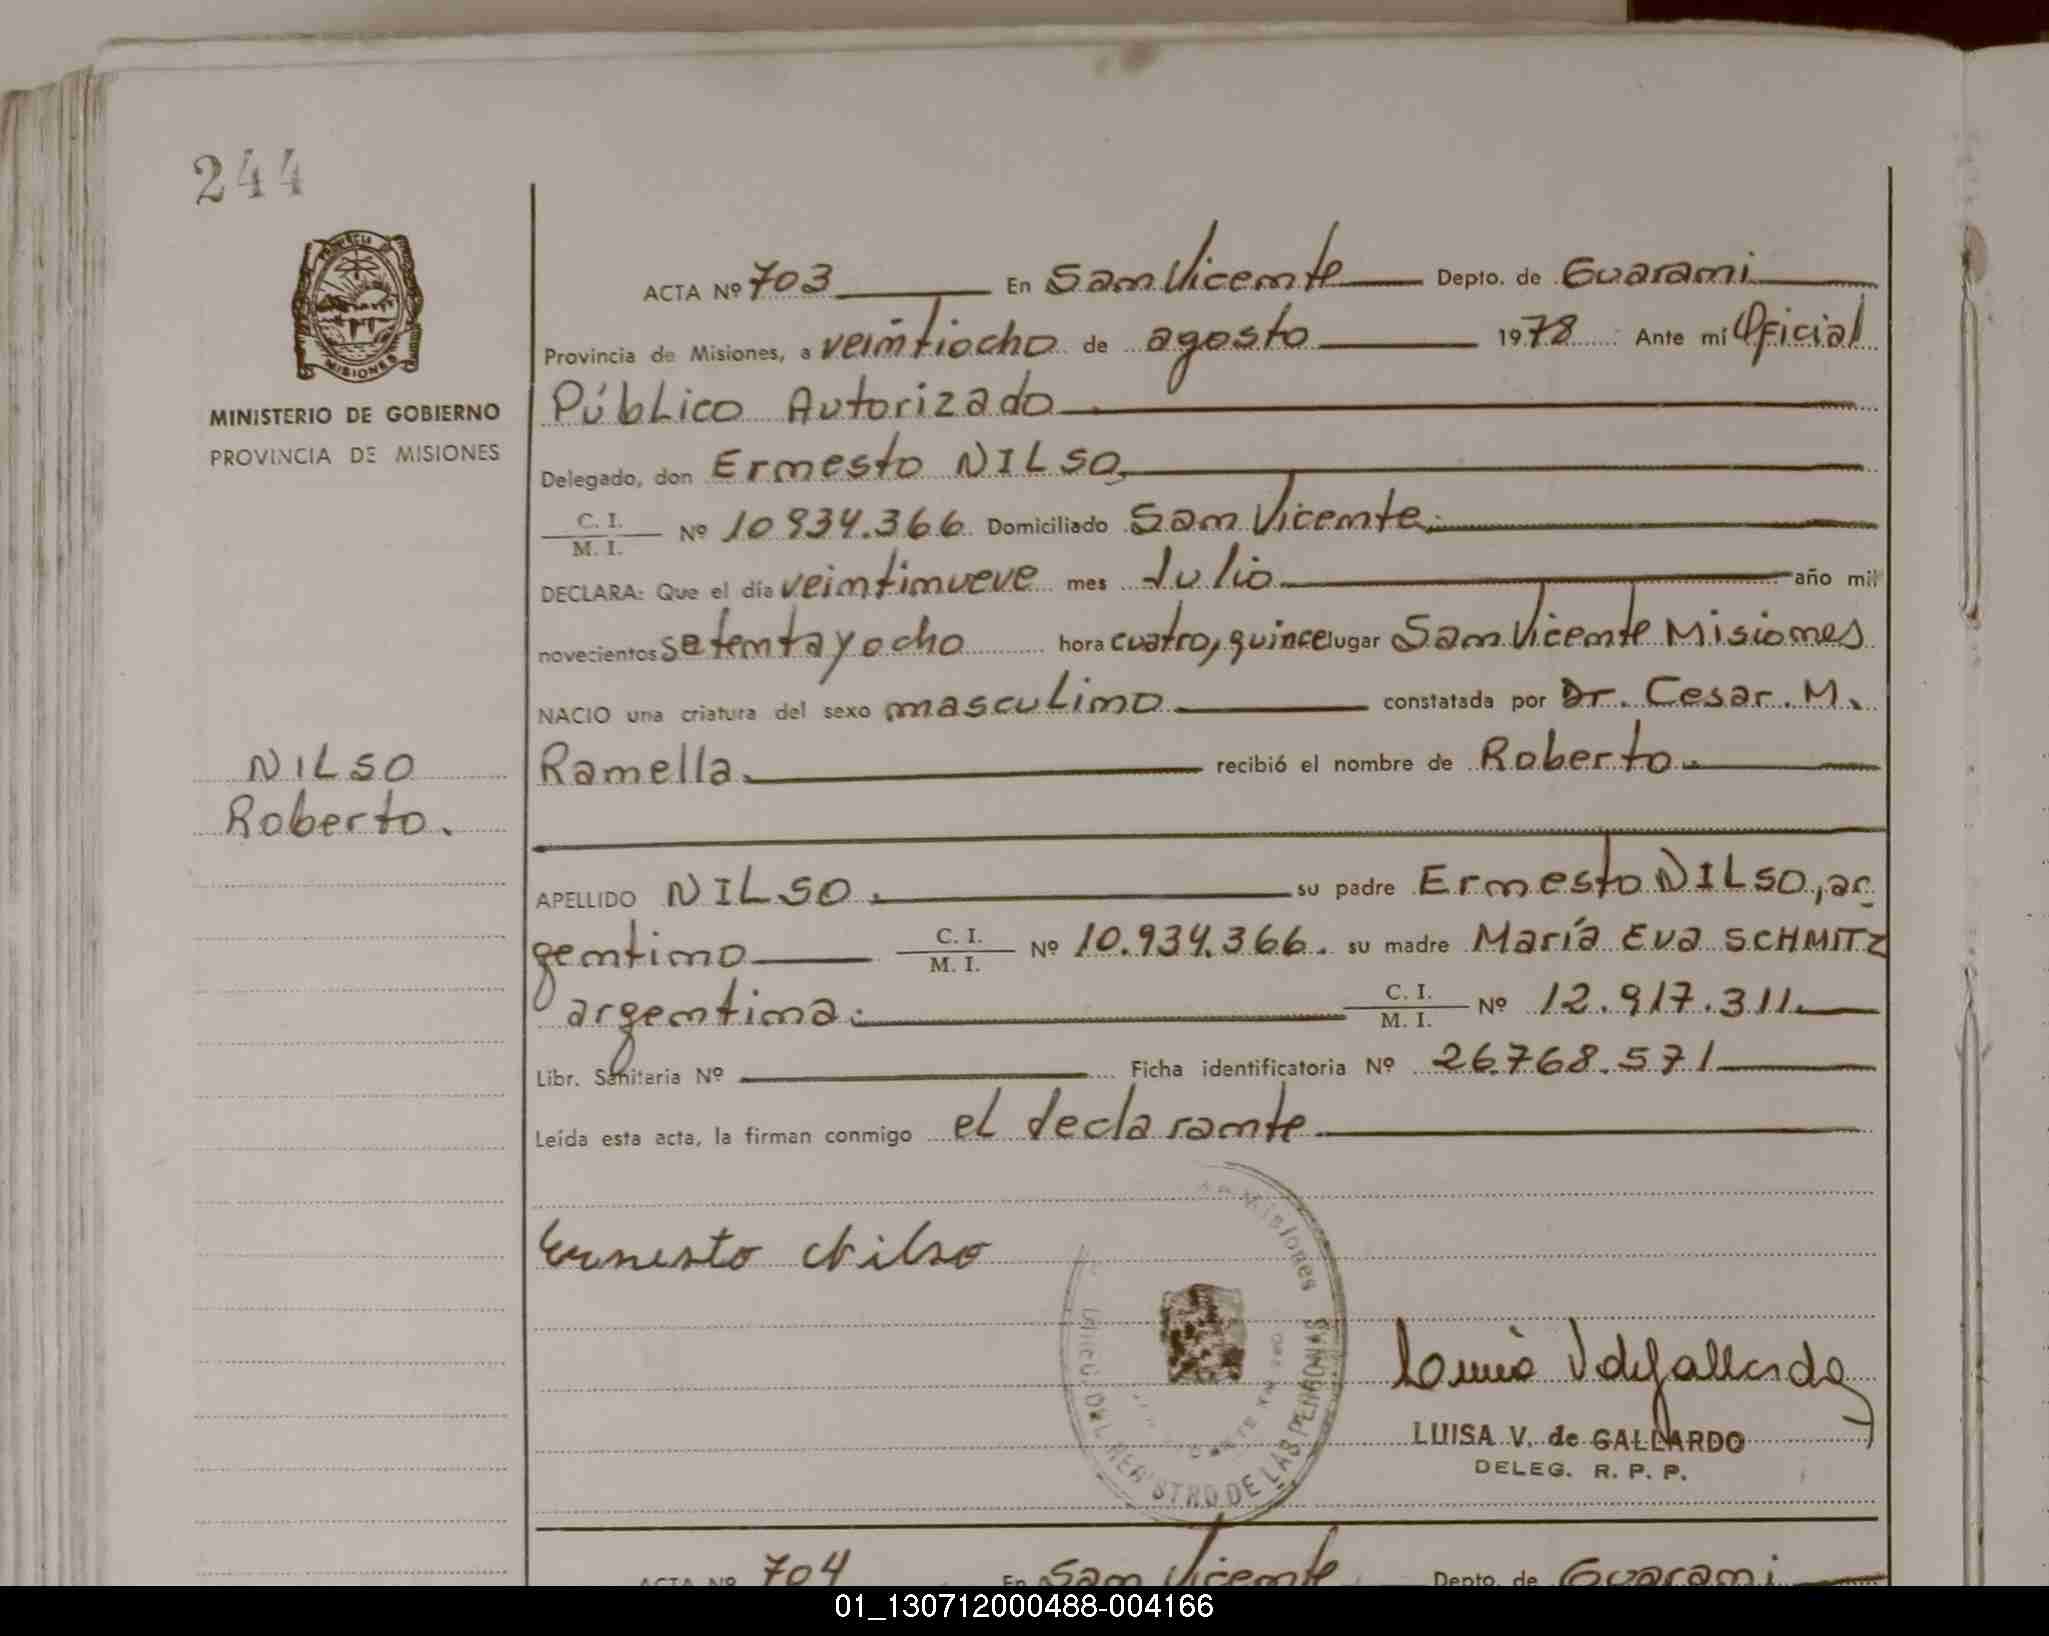 244
PROVINCIA DE
MISIONES
MINISTERIO DE GOBIERNO
PROVINCIA DE MISIONES
NILSO
Roberto.
ACTA Nº 703 En San Vicente Depto. de Guarani
Provincia de Misiones, a veintiocho de agosto 1978 Ante mí Oficial
Público Autorizado
Delegado, don Ernesto NILSO,
C. I.
M. I. Nº 10 934.366 Domiciliado San Vicente.
DECLARA: Que el día veintinueve mes Julio año mil
novecientos setenta y ocho hora cuatro, quince lugar San Vicente Misiones
NACIO una criatura del sexo masculino constatada por Dr. Cesar. M.
Ramella. recibió el nombre de Roberto.
APELLIDO NILSO. su padre Ernesto NILSO, ar
gentino C. I.
M. I. Nº 10.934.366. su madre María Eva SCHMITZ
argentina. C. I.
M. I. Nº 12.917.311.
Libr. Sanitaria Nº Ficha identificatoria Nº 26.768.571
Leída esta acta, la firman conmigo el declarante
Ernesto Nilso
Misiones
DEL REGISTRO DE LAS PERSONAS
Luisa V de Gallardo
LUISA V. de GALLARDO
DELEG. R. P. P.
ACTA Nº 704 En San Vicente Depto. de Guarani
01_130712000488-004166